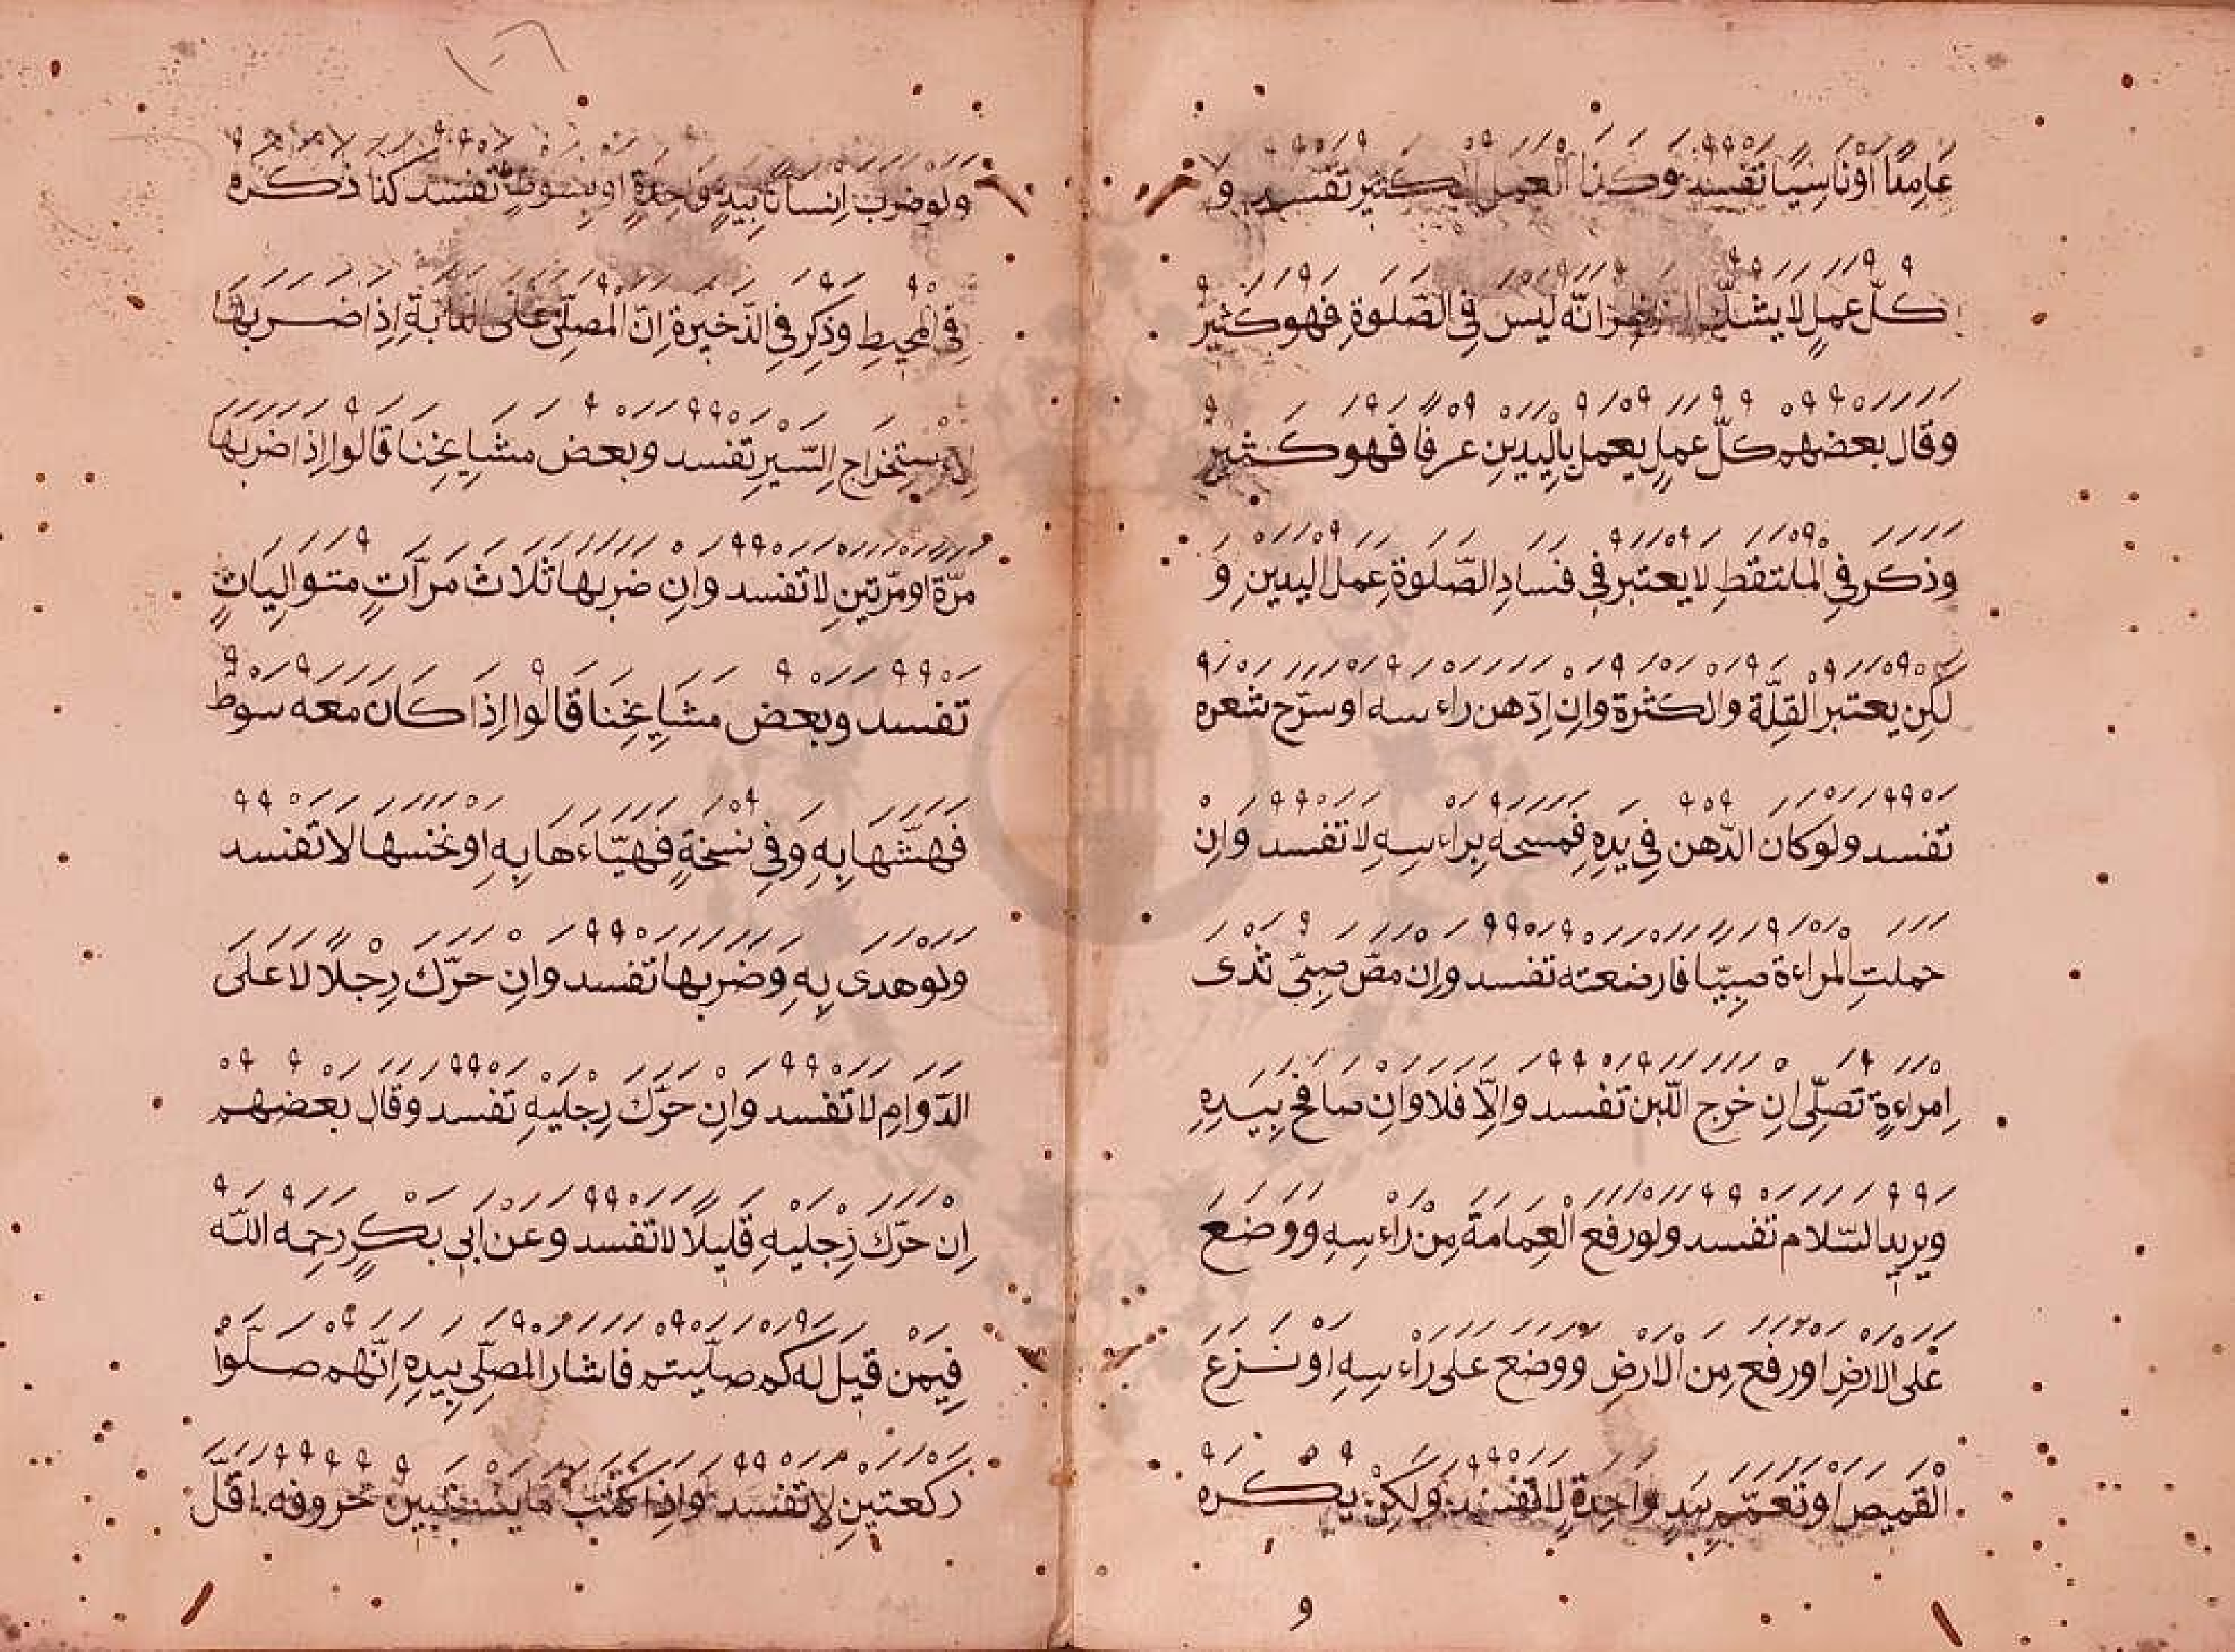 عَامِدًا اَوْ نَاسِيًا تَفْسُدُ وَكَذَا الْعَمَلُ الكَثِيْرُ تَفْسُد وَ
كلّ عملٍ لا يشكّ الناظر انّه ليس في الصّلوة فهو كثيرٌ
وقال بعضهم كلّ عملٍ يعمل باليدين عرفا فهو كثير
وذكر في الملتقط لا يعتبر في فساد الصّلوة عمل اليدين و
لكن يعتبر القلّة والكثرة وان ادّهن راءسه او سرّح شعره
تفسد ولو كان الدّهن في يده فمسحه براءسه لا تفسد وان
حملت المراءة صبيّا فارضعته تفسد وان مصّ صبيّ ثدى
امراءةٍ تصلّى ان خرج اللّبن تفسد والّا فلا وان صافح بيده
ويريد السّلام تفسد ولو رفع العمامة من راءسه ووضع
على الارض او رفع من الارض ووضع على راءسه او نزع
القميص او تعمّم بيد واحدة لا تفسد ولكن يكره
و
ولو ضرب انسانا بيدٍ واحدةٍ او بسوطٍ تفسد كذا ذكره
في المحيط وذكر في الذّخيرة انّ المصلّى على الدّابة اذا ضربها
لاستخراج السّير تفسد وبعض مشايخنا قالوا اذا ضربها
مرّة او مرّتين لا تفسد وان ضربها ثلاث مرّاتٍ متوالياتٍ
تفسد وبعض مشايخنا قالوا اذا كان معه سوط
فهشّها به وفي نسخةٍ فهيّاءها به او نخسها لا تفسد
ولو هدى به وضربها تفسد وان حرّك رجلًا لا على
الدّوام لا تفسد وان حرّك رجليه تفسد وقال بعضهم
ان حرّك رجليه قليلًا لا تفسد وعن ابي بكرٍ رحمه اللّه
فيمن قيل له كم صلّيتم فاشار المصلّى بيده انّهم صلّوا
ركعتين لا تفسد واذا كتب ما يستبين حروفه اقلّ